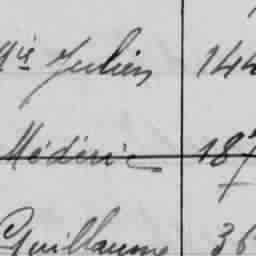 Julien 144
Médéric 187
Guillaume 36